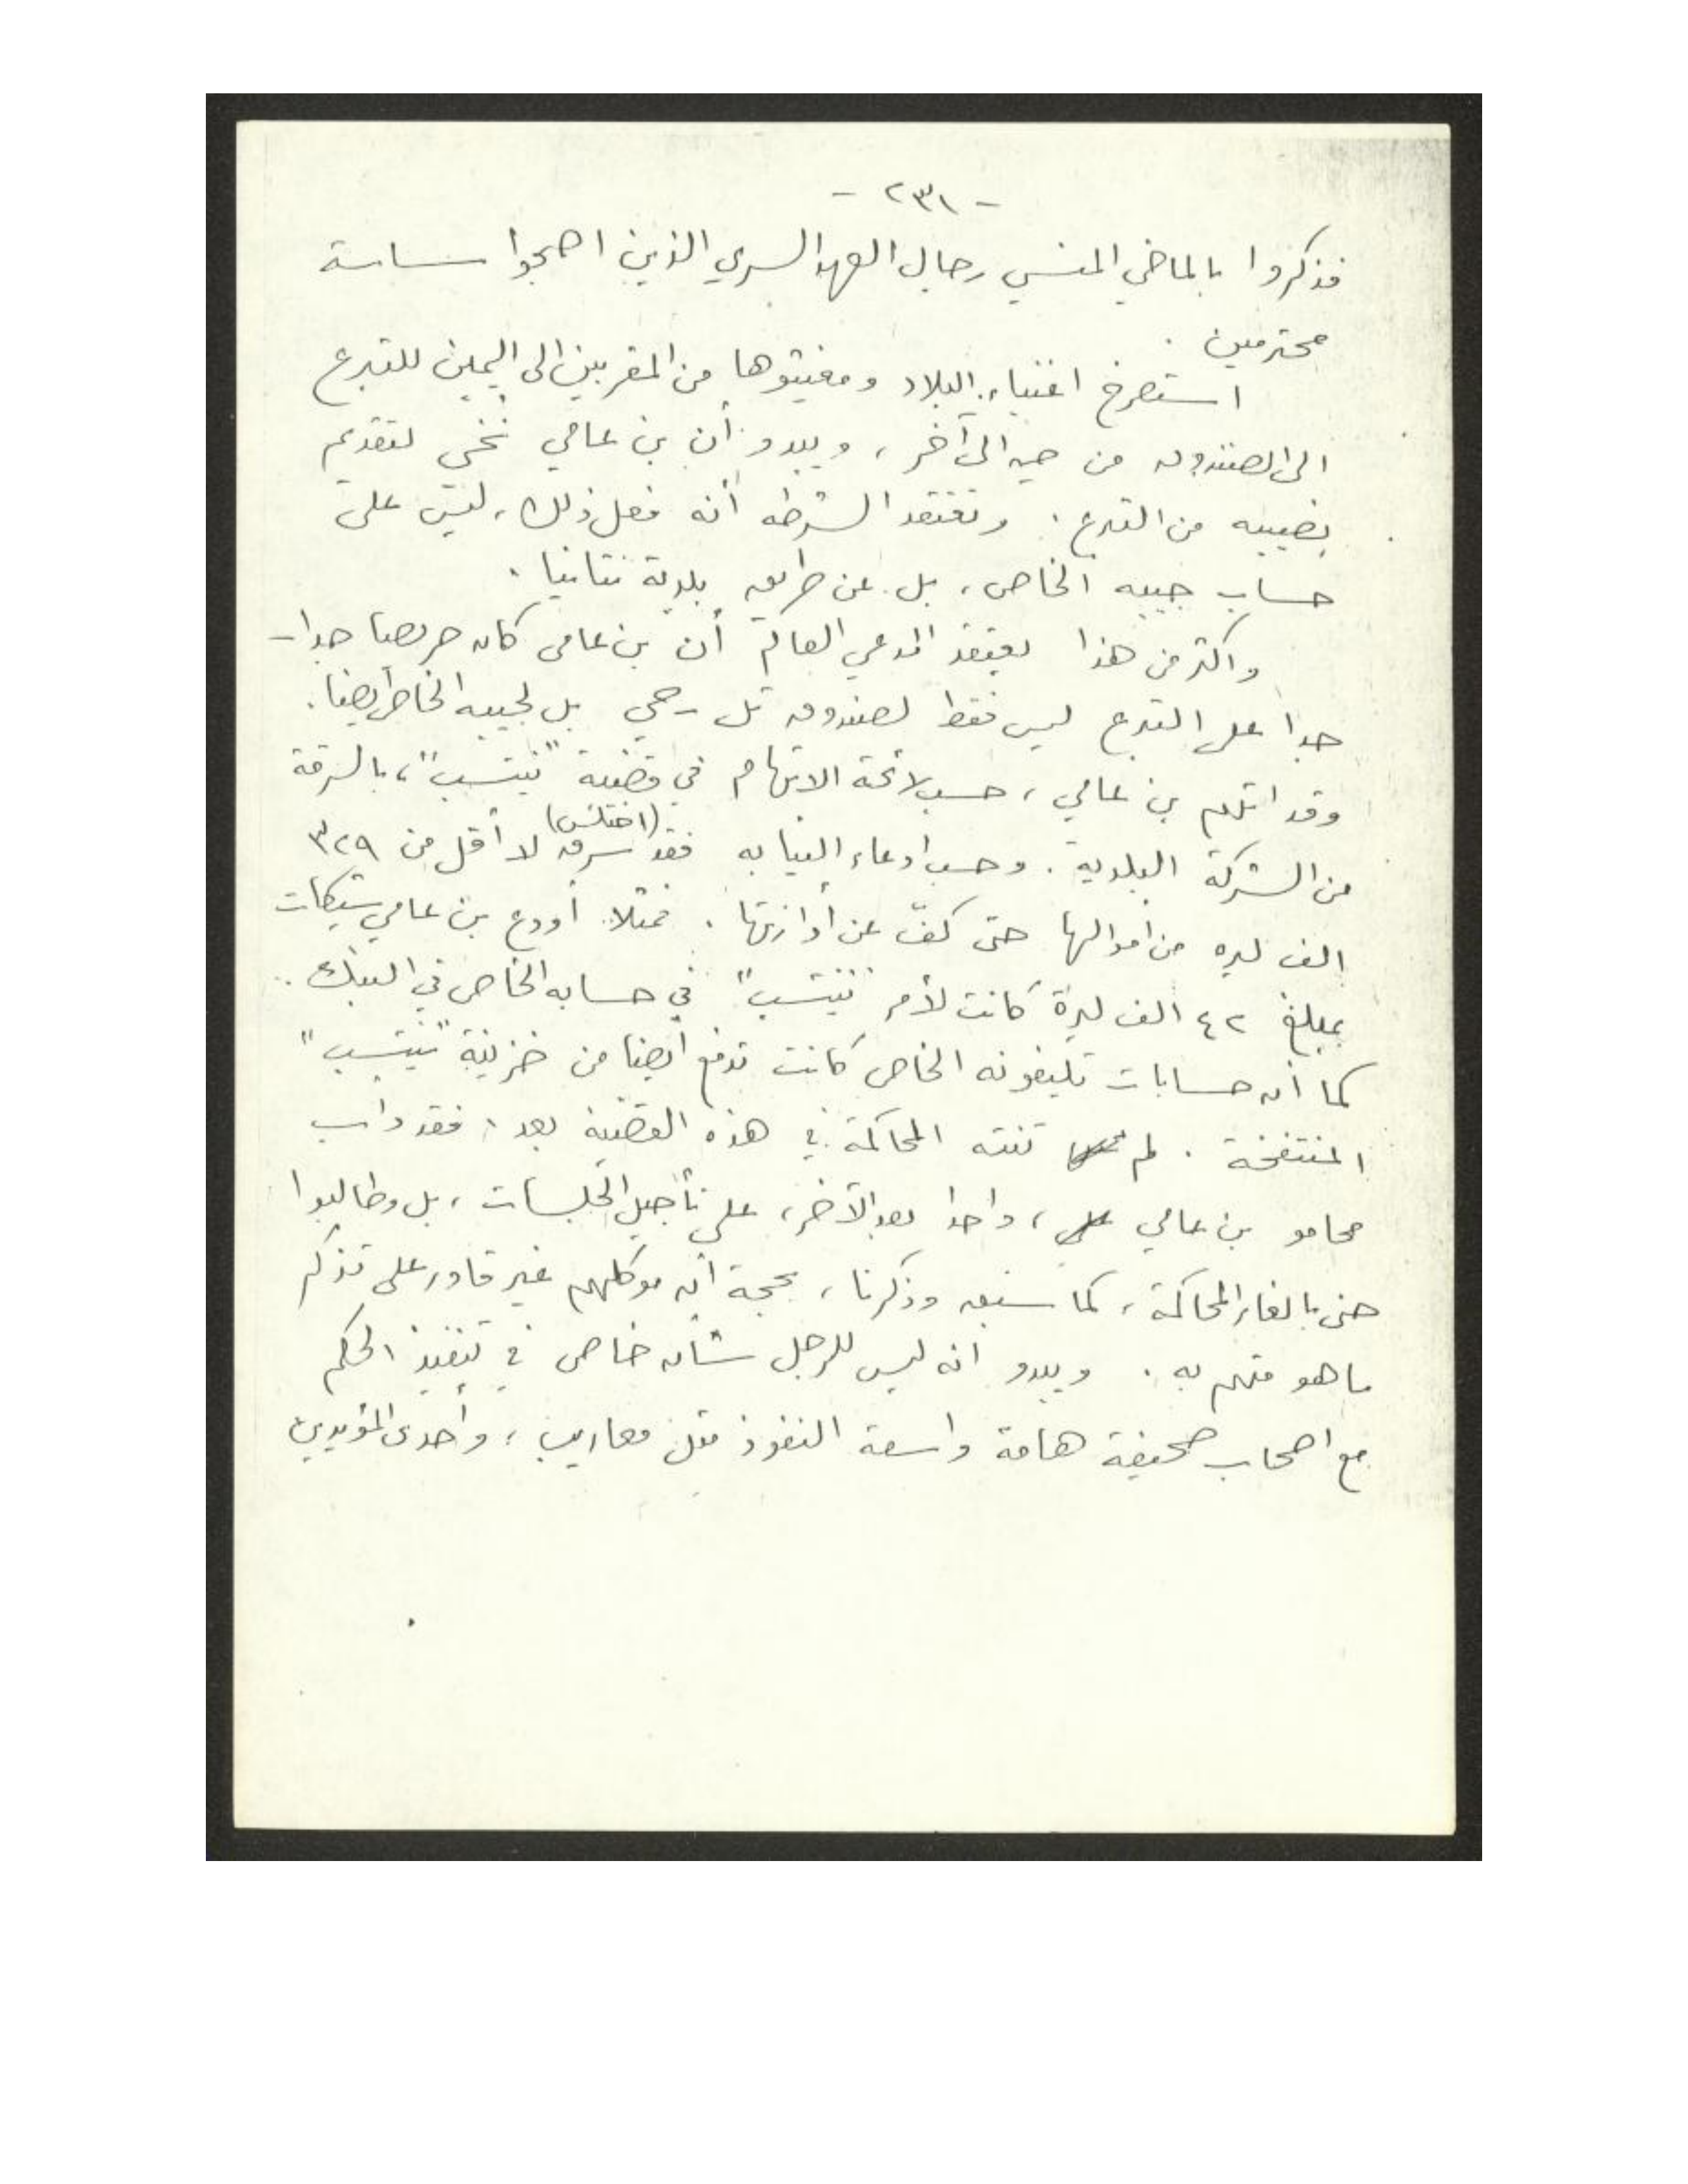 - ٢٣١ -
فذكروا بالماضي المنسي رجال العهد السري الذين اصبحوا ساسة
محترمين .
استصرخ اغنياء البلاد ومغيثوها من المقربين الى اليمين للتبرع
الى الصندوق من حين الى آخر ، ويبدو أن بن عامي نخي لتقديم
نصيبه من التبرع . وتعتقد الشرطه أنه فعل ذلك ، ليس على
حساب جيبه الخاص ، بل عن طريق بلدية نتانيا .
واكثر من هذا يعتقد المدعي العام أن بن عامي كان حريصا جدا -
جدا على التبرع ليس فقط لصندوق تل - حي بل لجيبه الخاص أيضا .
وقد اتهم بن عامي ، حسب لائحة الاتهام في قضية "نيتسب" ، بالسرقة
من الشركة البلدية . وحسب ادعاء النيابه فقد سرق (اختلس) لا أقل من ٣٢٩
الف ليره من اموالها حتى كفّ عن أدارتها . فمثلا أودع بن عامي شيكات
بمبلغ ٤٢ الف ليرة كانت لأمر "نيتسب" في حسابه الخاص في البنك .
كما أن حسابات تليفونه الخاص كانت تدفع أيضا من خزينة "نيتسب"
المنتفخة . لم تنته المحاكمة في هذه القضية بعد ، فقد دأب
محامو بن عامي ، واحدا بعد الآخر ، على تأجيل الجلسات ، بل وطالبوا
حتى بالغاء المحاكمة ، كما سبق وذكرنا ، بحجة ان موكلهم غير قادر على تذكر
ما هو متهم به . ويبدو انه ليس للرجل شأن خاص في تنفيذ الحكم
مع اصحاب صحيفة هامة واسعة النفوذ مثل معاريب ، وأحدى المؤيدين